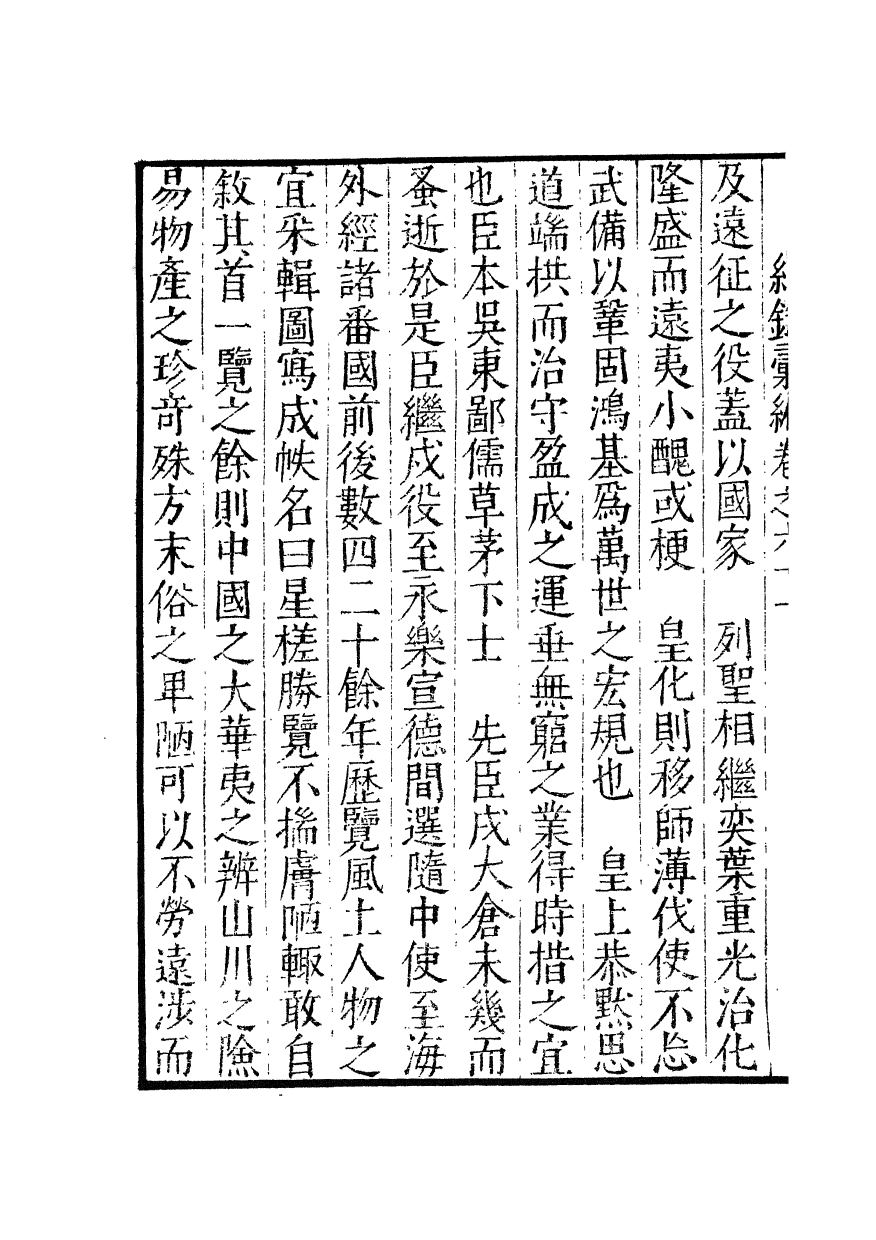 紀錄彙編卷之六十一
及遠征之役蓋以國家　列聖相繼奕葉重光治化
隆盛而遠夷小醜或梗　皇化則移師薄伐使不忘
武備以鞏固鴻基爲萬世之宏規也　皇上恭默思
道端拱而治守盈成之運垂無窮之業得時措之宜
也臣本吳東鄙儒草茅下士　先臣戍大倉未幾而
蚤逝於是臣繼戍役至永樂宣德間選隨中使至海
外經諸番國前後數四二十餘年歷覽風土人物之
宜采輯圖寫成帙名曰星槎勝覽不揣膚陋輙敢自
敘其首一覽之餘則中國之大華夷之辨山川之險
易物產之珍竒殊方末俗之卑陋可以不勞遠涉而